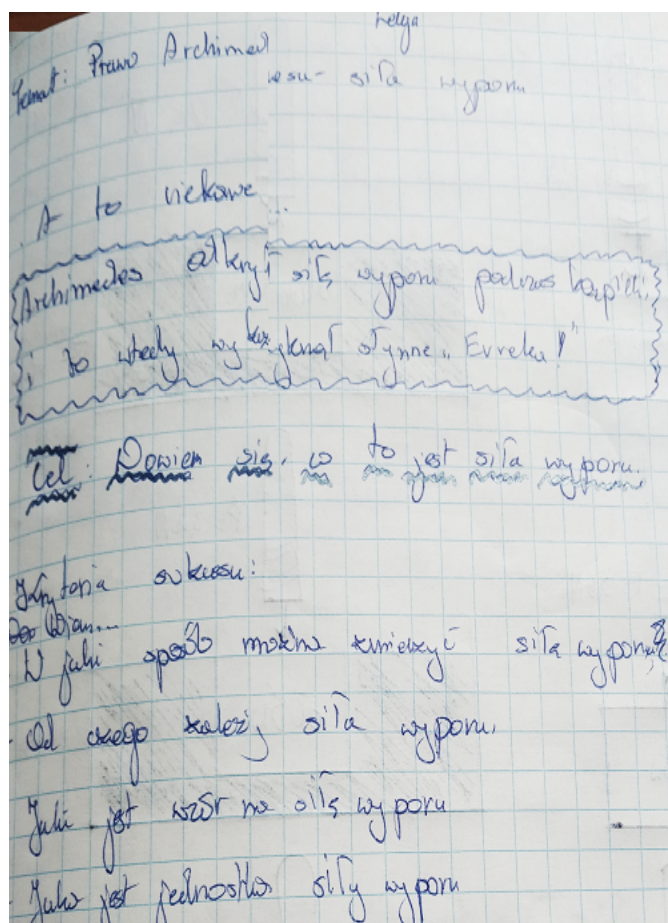 Lekcja
Temat: Prawo Archimedesu - siła wyporu
A to ciekawe...
Archimedes odkrył siłę wyporu podczas kąpieli,
i to wtedy wykrzyknął słynne „Evreka!”
Cel: Dowiem się, co to jest siła wyporu.
Kryteria sukcesu:
Wiem...
W jaki sposób można zmierzyć siłę wyporu?
- Od czego zależy siła wyporu.
Jaki jest wzór na siłę wyporu
- Jaka jest jednostka siły wyporu